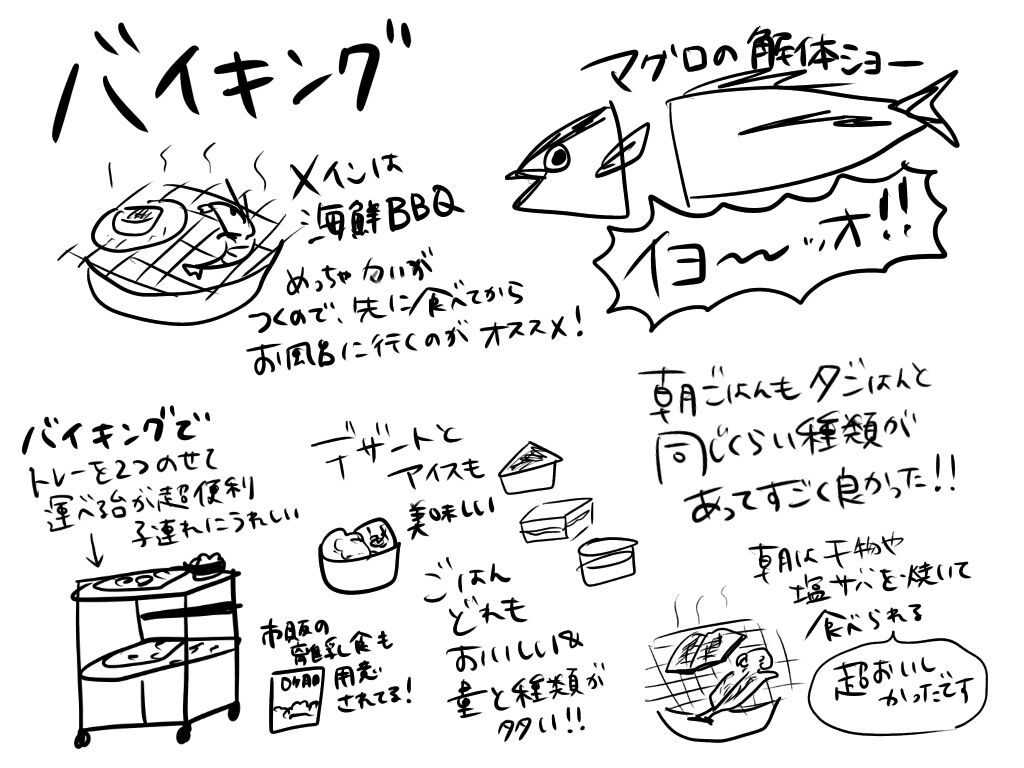 バイキング
マグロの解体ショー
イヨ〜〜ッオ!!
メインは
海鮮BBQ
めっちゃ匂いが
つくので、先に食べてから
お風呂に行くのがオススメ!
朝ごはんも夕ごはんと
同じくらい種類が
あってすごく良かった!!
バイキングで
トレーを2つのせて
運べる台が超便利
子連れにうれしい
デザートと
アイスも
美味しい
ごはん
どれも
おいしい&
量と種類が
多い!!
市販の
離乳食も
用意
されてる!
朝は干物や
塩サバを焼いて
食べられる
超おいし
かったです